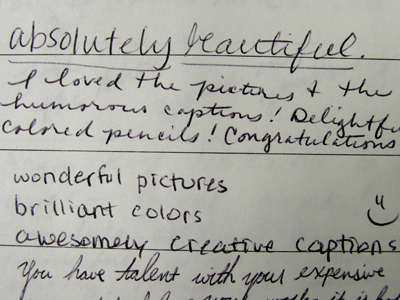 absolutely beautiful.
I loved the pictures & the
humorous captions! Delightful
colored pencils! Congratulations
wonderful pictures
brilliant colors
awesomely creative captions
You have talent with your expensive